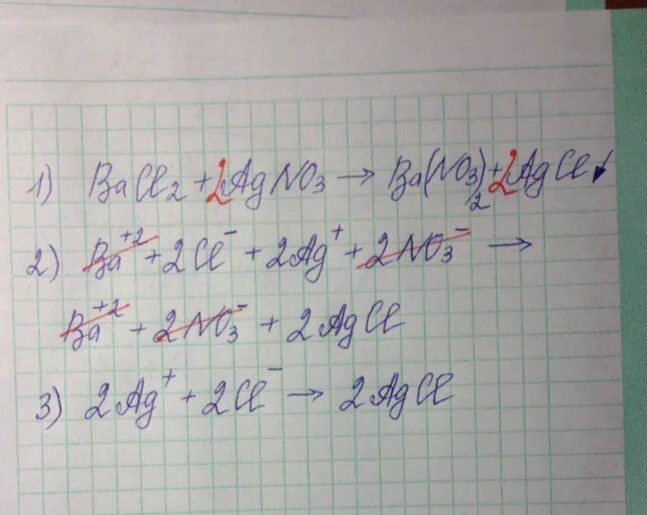 1) BaCl₂ + 2AgNO₃ → Ba(NO₃)₂ + 2AgCl↓
2) Ba⁺² + 2Cl⁻ + 2Ag⁺ + 2NO₃⁻ →
Ba⁺² + 2NO₃⁻ + 2AgCl
3) 2Ag⁺ + 2Cl⁻ → 2AgCl